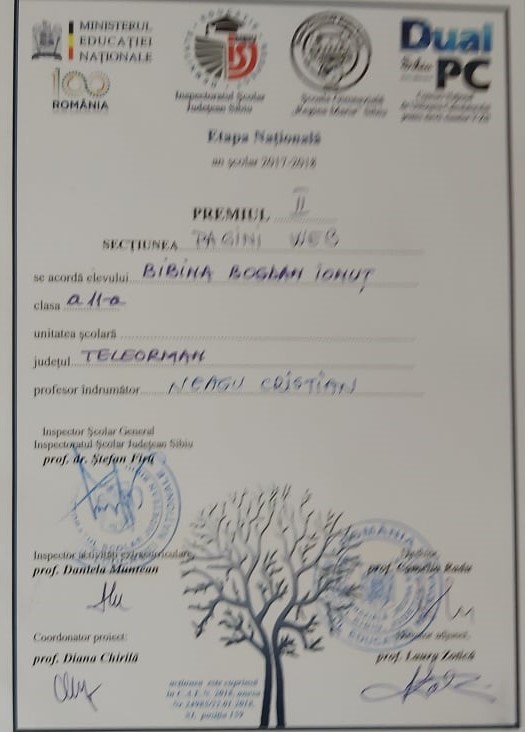 MINISTERUL
EDUCAȚIEI
NAȚIONALE
100
ROMÂNIA
Inspectoratul Școlar
Județean Sibiu
Dual
PC
Etapa Națională
an școlar 2017-2018
PREMIUL II
SECȚIUNEA PAGINI WEB
se acordă elevului BIBINA BOGDAN IONUȚ
clasa a 11-a
unitatea școlară
județul TELEORMAN
profesor îndrumător NEAGU CRISTIAN
Inspector Școlar General
Inspectoratul Școlar Județean Sibiu
prof. dr. Ștefan Firu
Inspector activități extracurriculare,
prof. Daniela Muntean
prof. Radu
Coordonator proiect:
prof. Diana Chirilă
prof. Laura Zotică
acțiunea este cuprinsă
în C.A.E.N. 2018, anexa